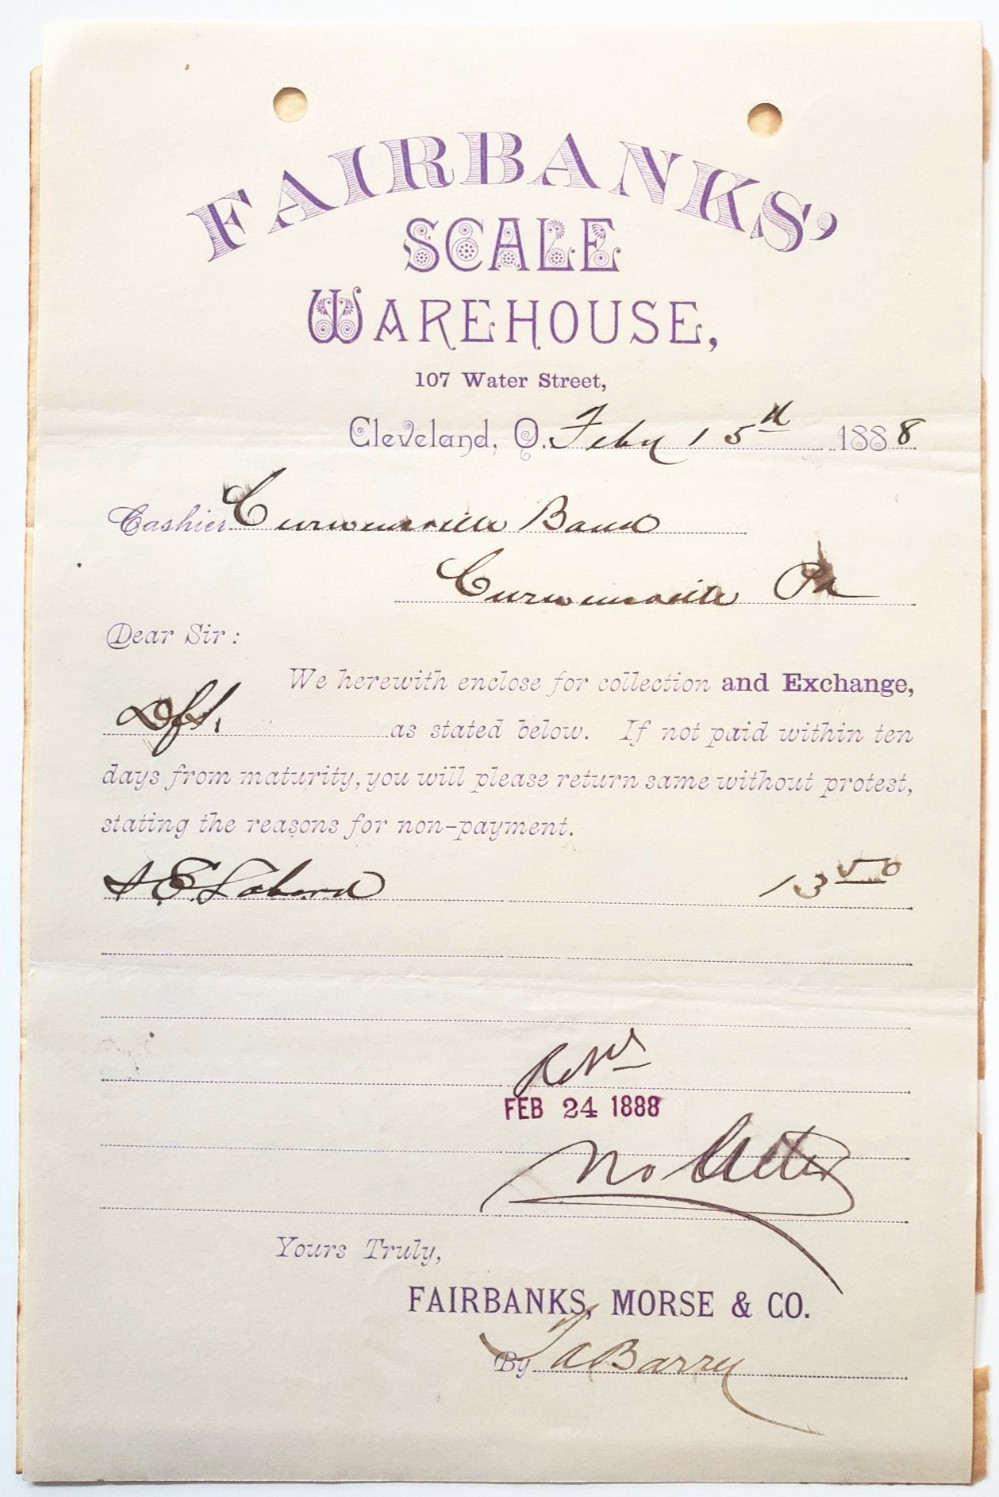 FAIRBANKS'
SCALE
WAREHOUSE,
107 Water Street,
Cleveland, O. Feby 15th 1888
Cashier Curwensville Bank
Curwensville Pa
Dear Sir:
We herewith enclose for collection and Exchange,
Dft. as stated below. If not paid within ten
days from maturity, you will please return same without protest,
stating the reasons for non-payment.
13 50
FEB 24 1888
No
Yours Truly,
FAIRBANKS, MORSE & CO.
By Barry